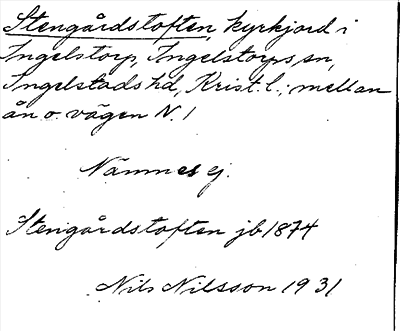 Stengårdstoften, kyrkjord i
Ingelstorp, Ingelstorps sn,
Ingelstads hd, Krist. l.; mellan
ån o. vägen N. 1
Nämnes ej.
Stengårdstoften jb 1874
Nils Nilsson 1931